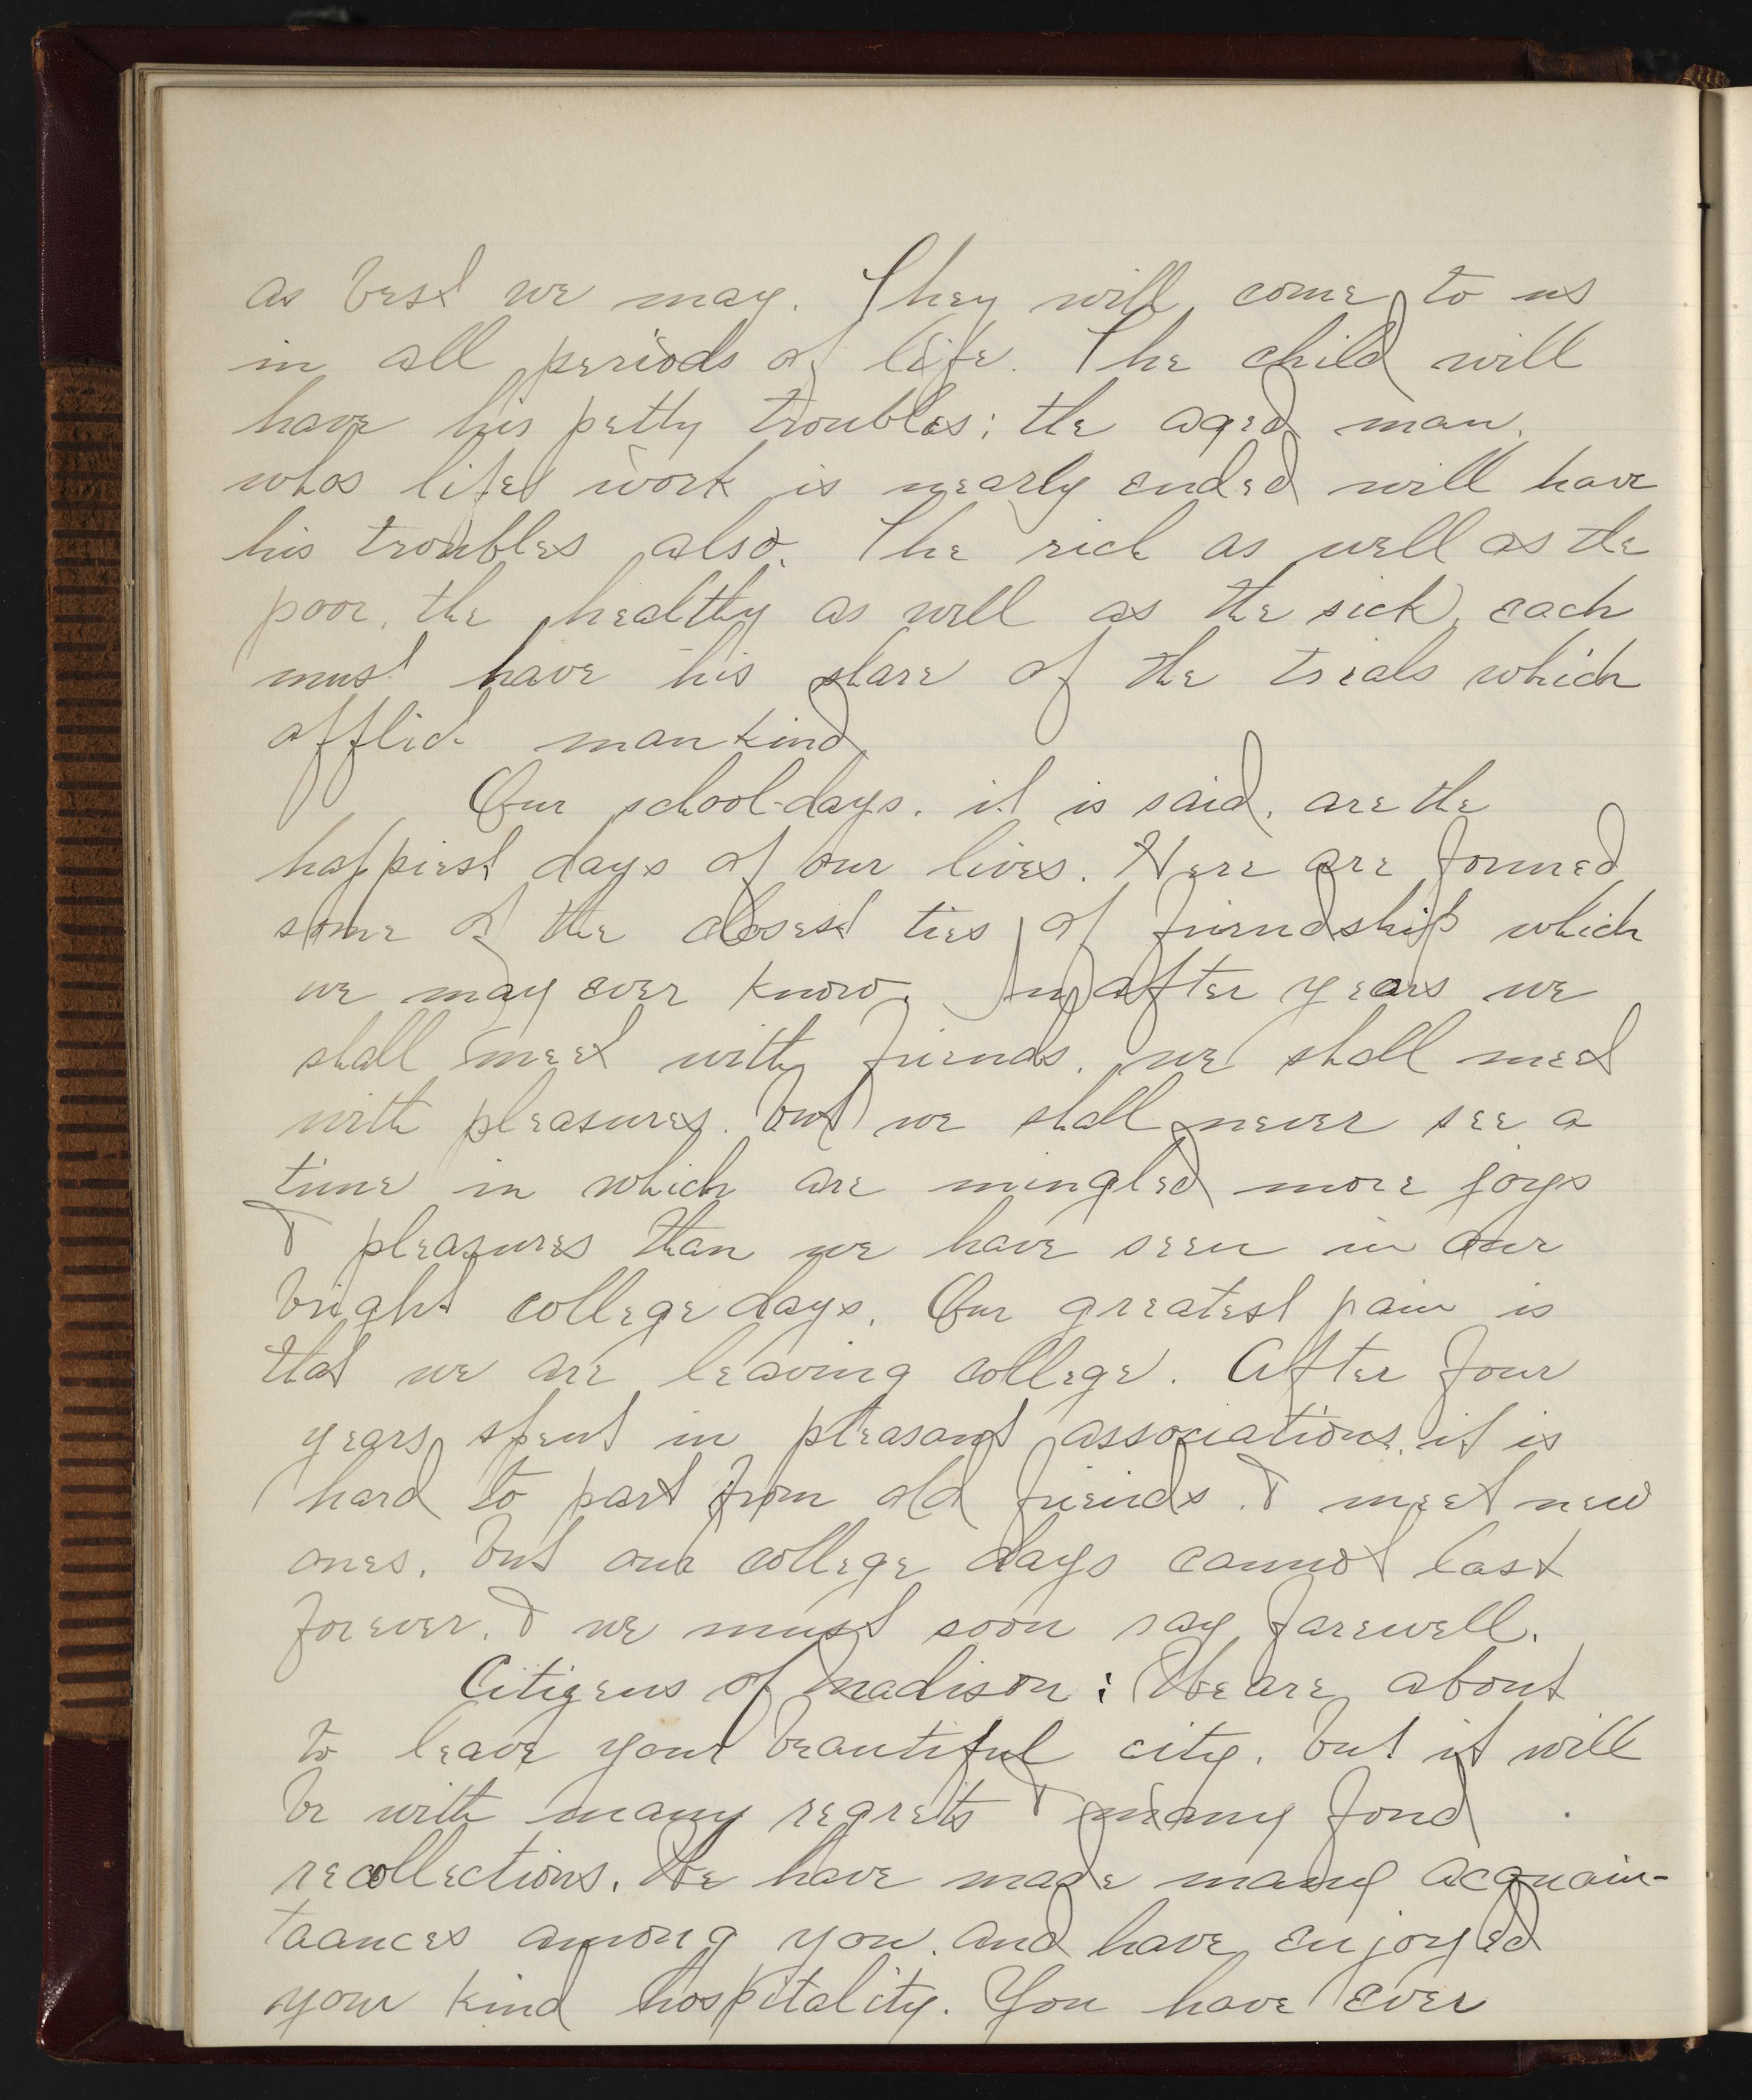 as best we may. They will come to us
in all periods of life. The child will
have his petty troubles; the aged man,
whos lifes work is nearly ended will have
his troubles also. The rich as well as the
poor, the healthy as well as the sick, each
must have his share of the trials which
afflict mankind.
Our school-days, it is said, are the
happiest days of our lives. Here are formed
some of the closest ties of friendship which
we may ever know. In after years we
shall meet with friends, we shall meet
with pleasures, but we shall never see a
time in which are mingled more joys
& pleasures than we have seen in our
bright college days. Our greatest pain is
that we are leaving college. After four
years spent in pleasant associations, it is
hard to part from old friends & meet new
ones. But our college days cannot last
forever, & we must soon say farewell.
Citizens of Madison: We are about
to leave your beautiful city, but it will
be with many regrets & many fond
recollections. We have made many acquain-
taances among you, and have enjoyed
your kind hospitality. You have ever